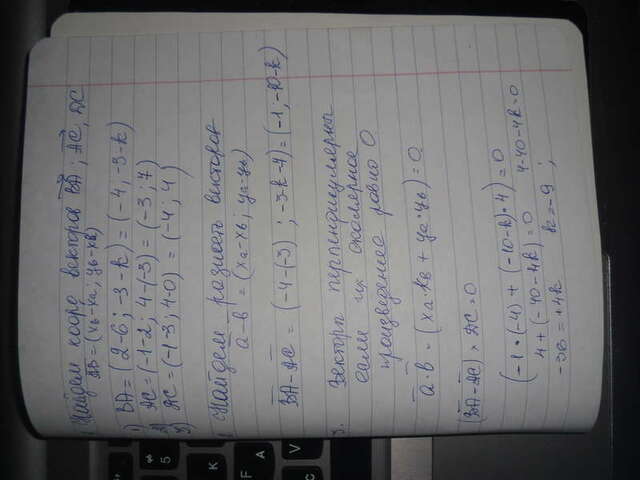 Найдем коорд векторов BA ; AC, DC
AB = (xb-xa ; yb-xb)
1) BA = (2-6 ; -3-k) = (-4, -3-k)
2) AC = (-1-2 ; 4-(-3)) = (-3 ; 7)
3) AC = (-1-3 ; 4-0) = (-4 ; 4)
Найдем разность векторов
a-b = (xa-xb ; ya-yb)
BA-AC = (-4-(-3) ; -3-k-7) = (-1, -10-k)
3. Вектора перпендикулярны
если их скалярное
произведение равно 0
a·b = (xa·xb + ya·yb) = 0
(BA-AC) × DC = 0
(-1·(-4) + (-10-k)·4) = 0
4+(-40-4k) = 0 4-40-4k=0
-36 = +4k k = -9 ;